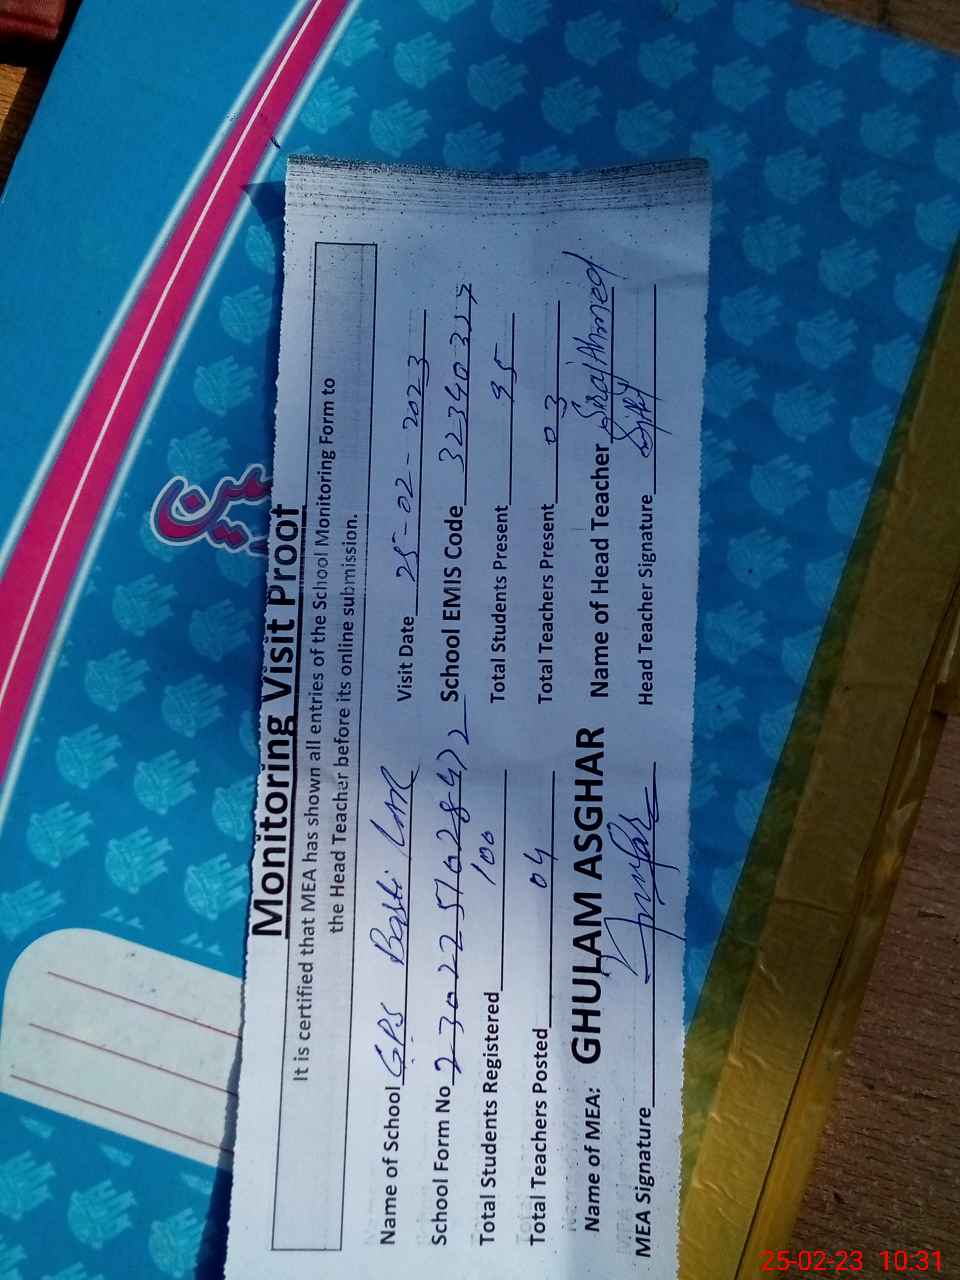 Monitoring Visit Proof
It is certified that MEA has shown all entries of the School Monitoring Form to
the Head Teacher before its online submission.
Name of School GPS Basti Visit Date 25-02-2023
School Form No School EMIS Code
Total Students Registered 100 Total Students Present 95
Total Teachers Posted 04 Total Teachers Present 03
Name of MEA: GHULAM ASGHAR Name of Head Teacher Siraj Ahmed
MEA Signature Head Teacher Signature
25-02-23 10:31